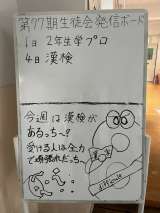 第77期生徒会発信ボード
1日 2年生学プロ
4日 漢検
今週は漢検が
あるっち〜?
受ける人は全力
で頑張れだっち、